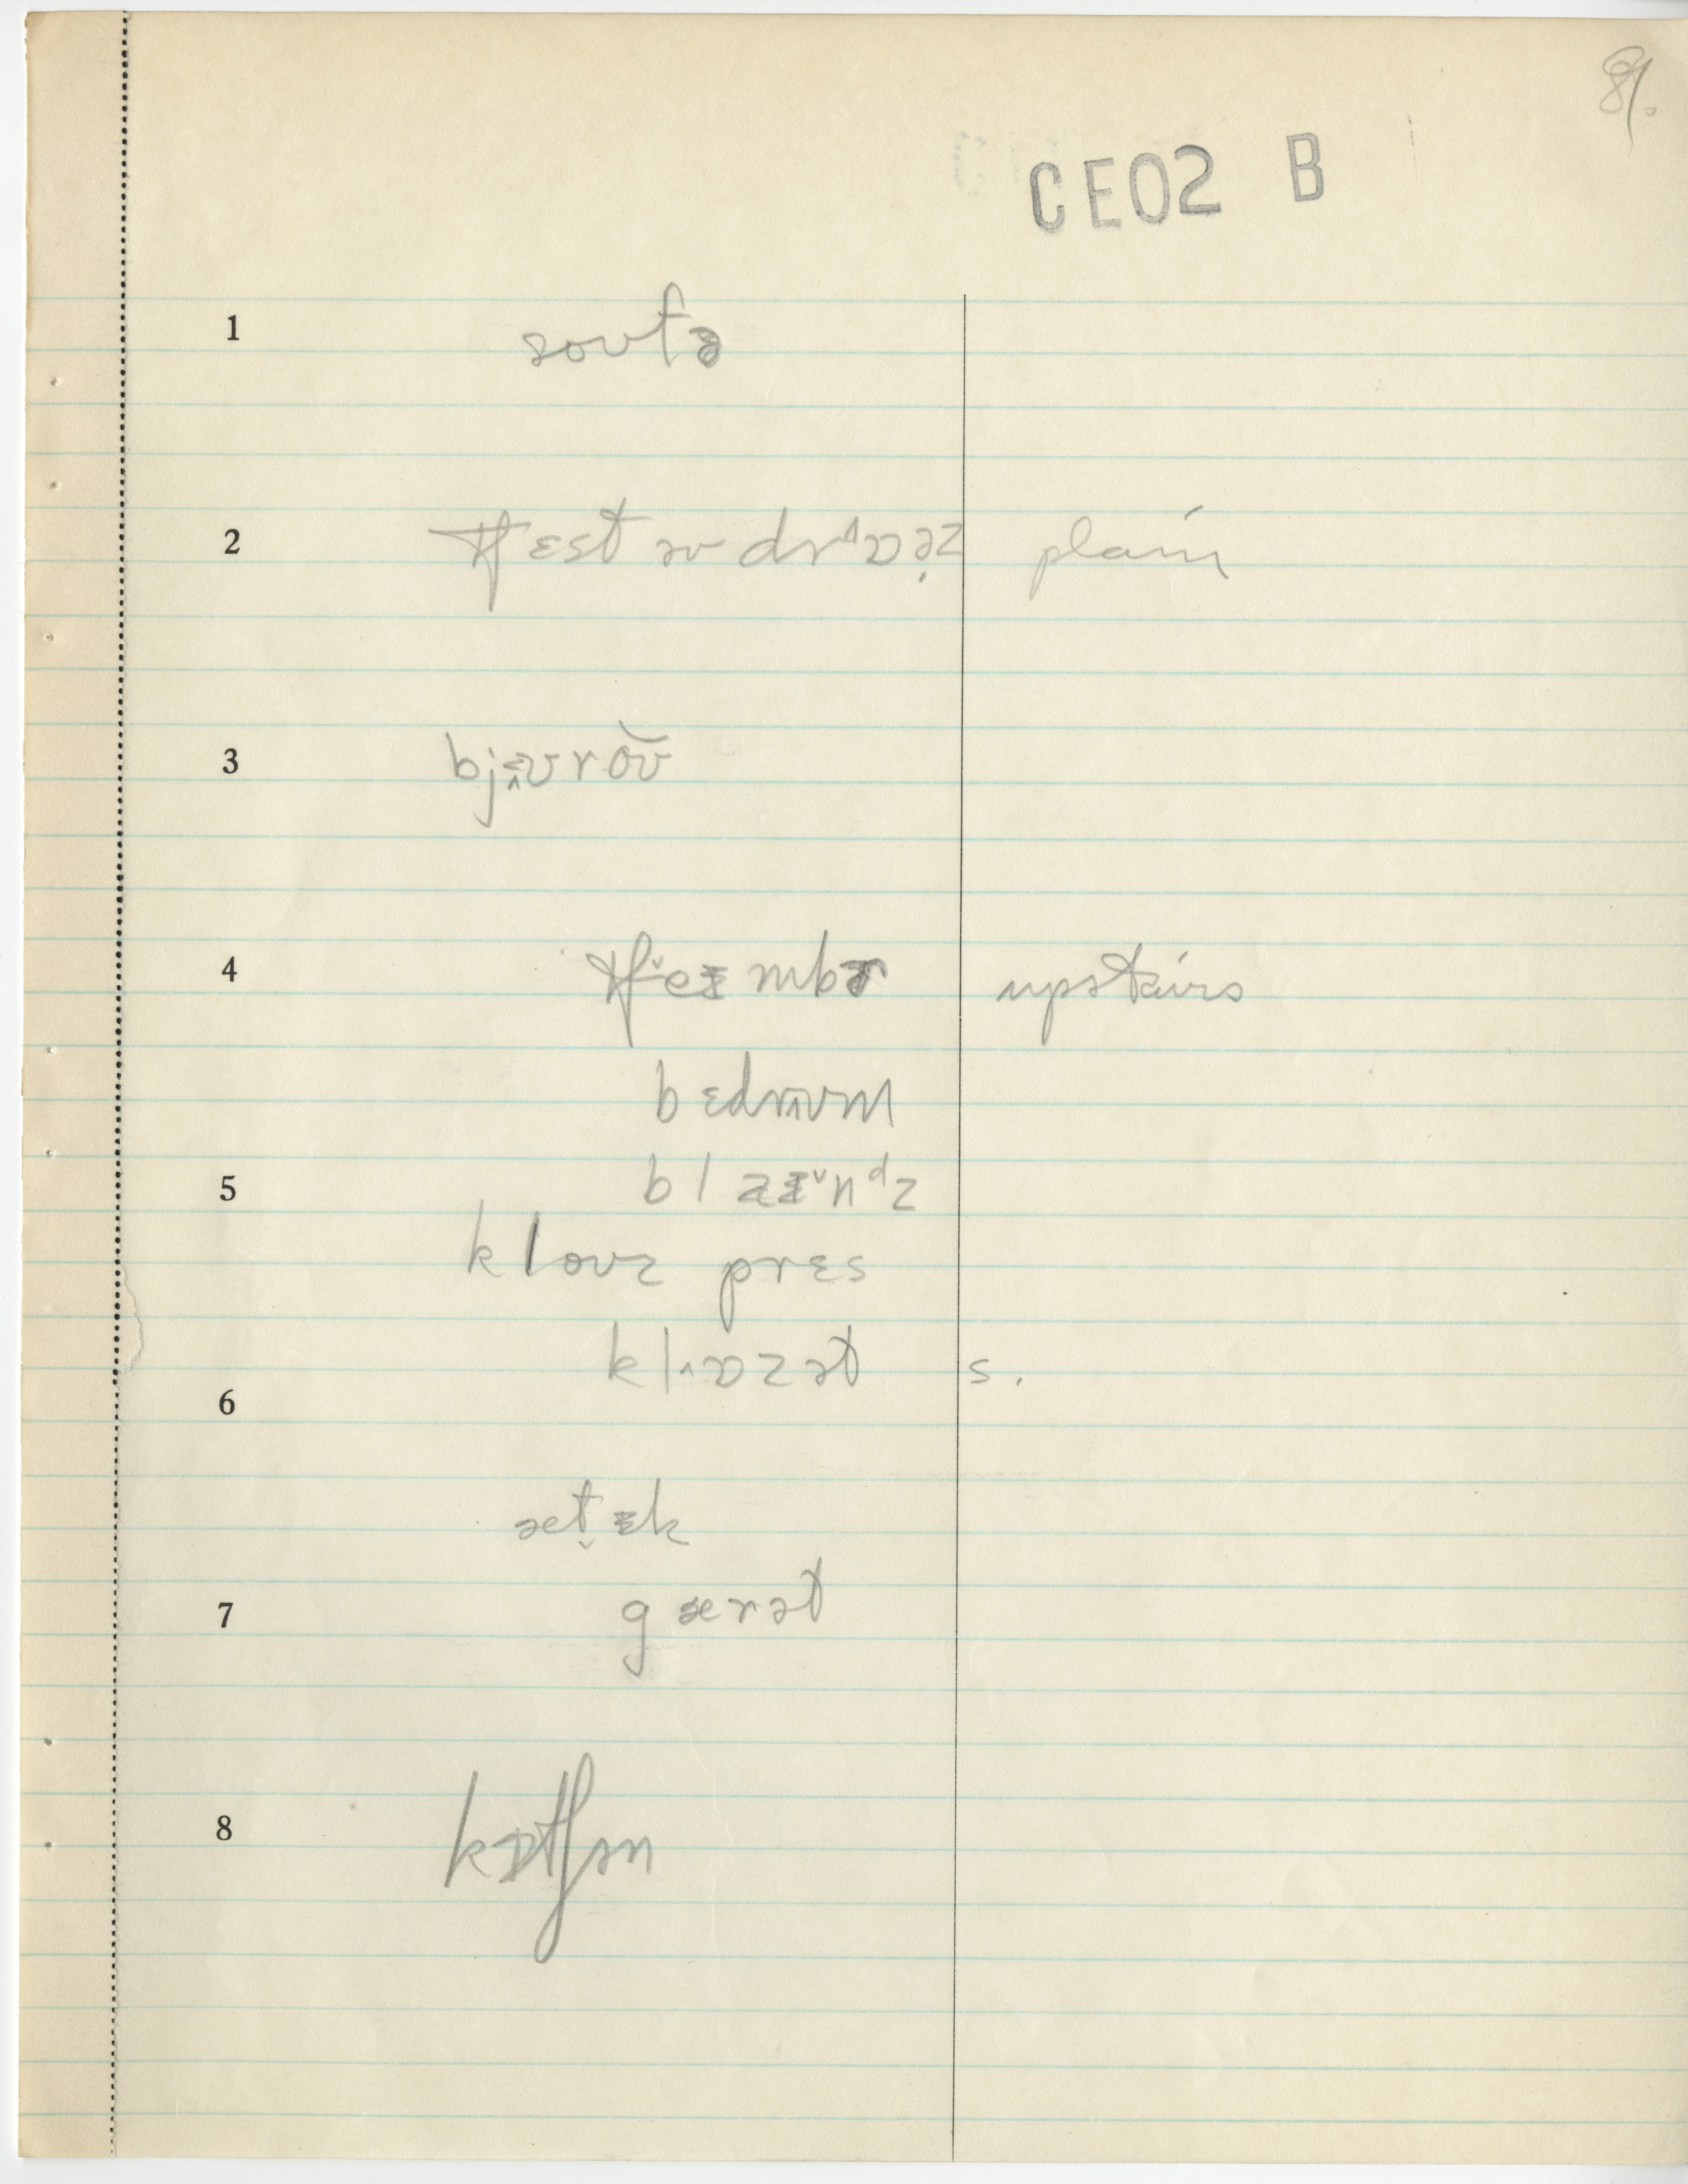 8.
CE02 B
1 soʊfə
2 tʃɛst əv dr˄ɒəz plain
3 bjᵻʊroʊ
4 tʃeɪmbɚ upstairs
bɛdrʉʊm
5 blaɪnᵈz
kloʊz prɛs
klɒzət s.
6
ætɪk
7 gærət
8 kɪtʃən